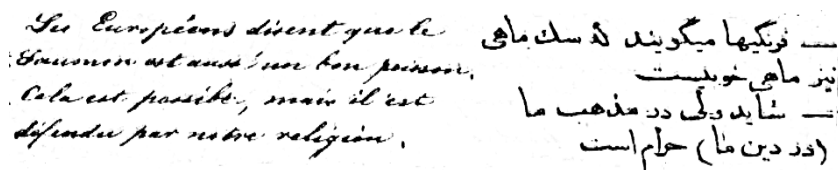 Les Européens disent que le
Saumon est aussi un bon poisson.
Cela est possible, mais il est
défendu par notre religion.
— فرنگیها میگویند که سک ماهی
نیز ماهی خوبیست
— شاید ولی در مذهب ما
(در دین ما) حرام است